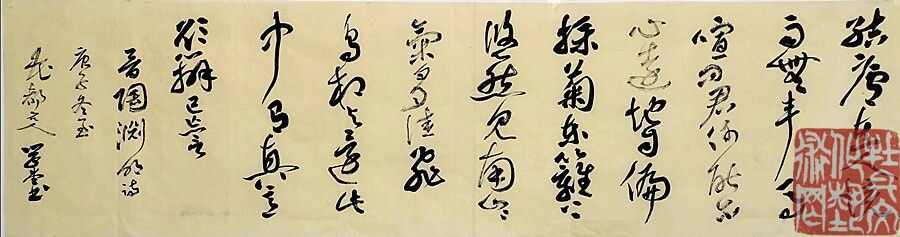 結廬在人境
而無車馬
喧問君何能尔
心遠地自偏
採菊東籬下
悠然見南山々
氣日夕佳飛
鳥相與還此
中有真意
欲辯已忘言
晉陶淵明詩
庚子冬